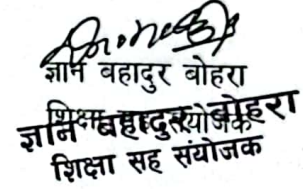 ज्ञान बहादुर बोहरा
शिक्षा सह संयोजक
ज्ञान बहादुर बोहरा
शिक्षा सह संयोजक